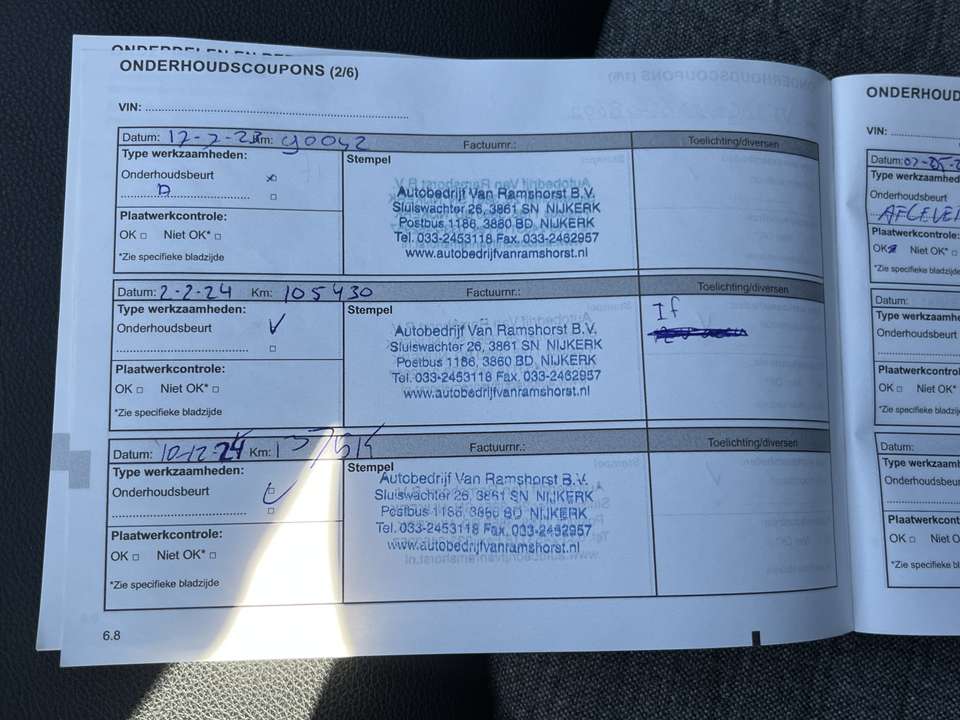 ONDERHOUDSCOUPONS (2/6)
VIN:
Datum: 17-7-23 Km: 90042 Factuurnr.: Toelichting/diversen
Type werkzaamheden: Stempel
Onderhoudsbeurt
Autobedrijf Van Ramshorst B.V.
Sluiswachter 26, 3861 SN NIJKERK
Postbus 1186, 3860 BD NIJKERK
Tel. 033-2453118 Fax. 033-2462957
www.autobedrijfvanramshorst.nl
Plaatwerkcontrole:
OK Niet OK*
*Zie specifieke bladzijde
Datum: 2-2-24 Km: 105430 Factuurnr.: Toelichting/diversen
Type werkzaamheden: Stempel
Onderhoudsbeurt
If
Autobedrijf Van Ramshorst B.V.
Sluiswachter 26, 3861 SN NIJKERK
Postbus 1186, 3860 BD NIJKERK
Tel. 033-2453118 Fax. 033-2462957
www.autobedrijfvanramshorst.nl
Plaatwerkcontrole:
OK Niet OK*
*Zie specifieke bladzijde
Datum: 10-12-24 Km: Factuurnr.: Toelichting/diversen
Type werkzaamheden: Stempel
Onderhoudsbeurt
Autobedrijf Van Ramshorst B.V.
Sluiswachter 26, 3861 SN NIJKERK
Postbus 1186, 3860 BD NIJKERK
Tel. 033-2453118 Fax. 033-2462957
www.autobedrijfvanramshorst.nl
Plaatwerkcontrole:
OK Niet OK*
*Zie specifieke bladzijde
6.8
ONDERHOUD
VIN:
Datum:
Type werkzaamhed
Onderhoudsbeurt
AFLEVER
Plaatwerkcontrole:
OK Niet OK*
*Zie specifieke bladzijde
Datum:
Type werkzaamhe
Onderhoudsbeurt
Plaatwerkcontrol
OK Niet OK*
*Zie specifieke bladzij
Datum:
Type werkzaamh
Onderhoudsbeu
Plaatwerkcont
OK Niet O
*Zie specifieke bl